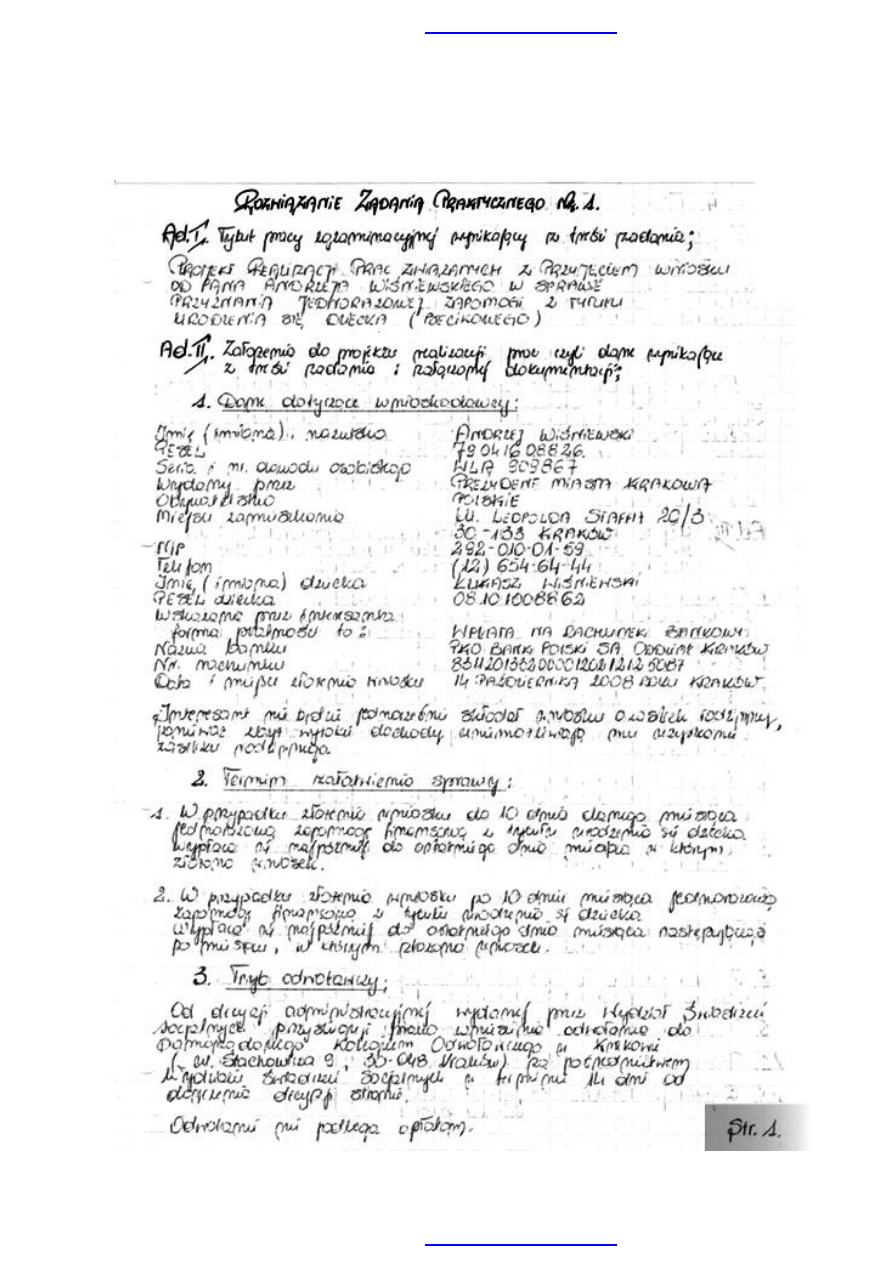 Rozwiązanie Zadania Praktycznego Nr. 1.
Ad.I. Tytuł pracy egzaminacyjnej wynikający z treści zadania;
PROJEKT REALIZACJI PRAC ZWIĄZANYCH Z PRZYJĘCIEM WNIOSKU
OD PANA ANDRZEJA WIŚNIEWSKIEGO W SPRAWIE
PRZYZNANIA JEDNORAZOWEJ ZAPOMOGI Z TYTUŁU
URODZENIA SIĘ DZIECKA (BECIKOWEGO)
Ad.II. Założenia do projektu realizacji prac czyli dane wynikające
z treści zadania i załączonej dokumentacji;
1. Dane dotyczące wnioskodawcy:
Imię (imiona) i nazwisko ANDRZEJ WIŚNIEWSKI
PESEL 79041608826
Seria i nr. dowodu osobistego WLA 909867
Wydany przez PREZYDENT MIASTA KRAKOWA
Obywatelstwo POLSKIE
Miejsce zamieszkania UL. LEOPOLDA STAFFA 20/3
30-133 KRAKÓW
NIP 292-010-01-59
Telefon (12) 654-64-44
Imię (imiona) dziecka ŁUKASZ WIŚNIEWSKI
PESEL dziecka 08101008862
Wskazana przez interesanta
forma płatności to: WPŁATA NA RACHUNEK BANKOWY
Nazwa banku PKO BANK POLSKI SA. ODDZIAŁ KRAKÓW
Nr. rachunku
Data i miejsce złożenia wniosku 14 PAŹDZIERNIKA 2008 ROKU KRAKÓW
Interesant nie będzie jednocześnie składał wniosku o zasiłek rodzinny,
ponieważ zbyt wysokie dochody uniemożliwiają mu uzyskanie
zasiłku rodzinnego
2. Termin załatwienia sprawy:
1. W przypadku złożenia wniosku do 10 dnia danego miesiąca
jednorazową zapomogę finansową z tytułu urodzenia się dziecka
wypłaca się najpóźniej do ostatniego dnia miesiąca w którym
złożono wniosek.
2. W przypadku złożenia wniosku po 10 dniu miesiąca jednorazową
zapomogę finansową z tytułu urodzenia się dziecka
wypłaca się najpóźniej do ostatniego dnia miesiąca następującego
po miesiącu, w którym złożono wniosek.
3. Tryb odwoławczy;
Od decyzji administracyjnej wydanej przez Wydział Świadczeń
Socjalnych przysługuje prawo wniesienia odwołania do
Samorządowego Kolegium Odwoławczego w Krakowie
(ul. Stachowicza 9, 30-048 Kraków) za pośrednictwem
Wydziału Świadczeń Socjalnych w terminie 14 dni od
doręczenia decyzji stronie.
Odwołanie nie podlega opłatom.
Str. 1.